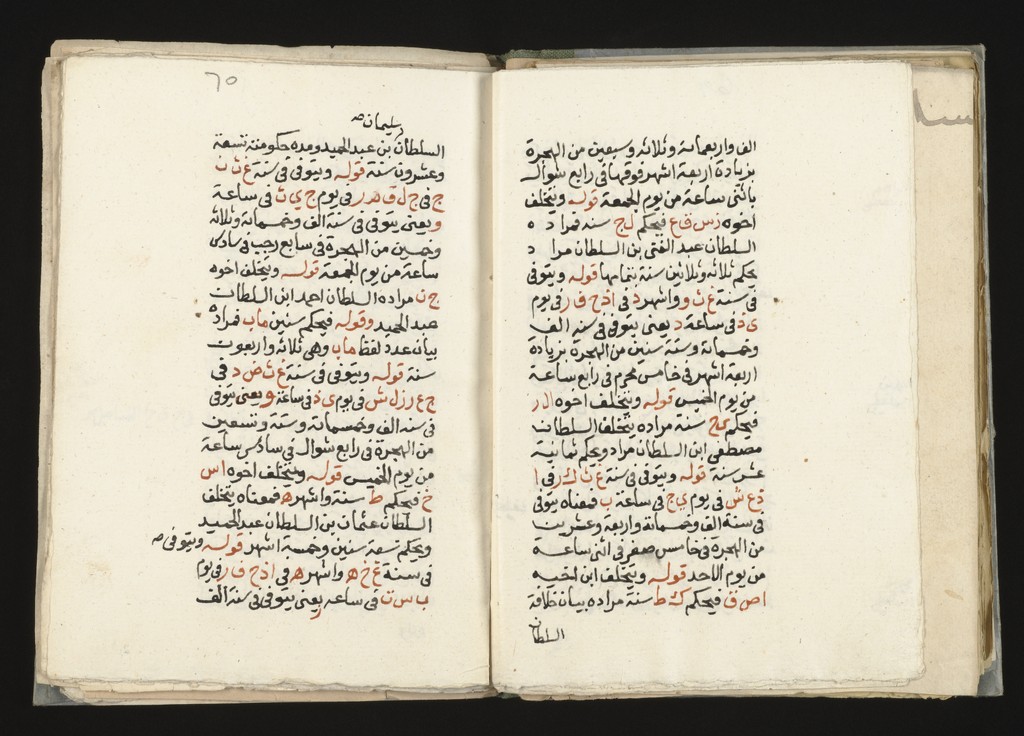 الف واربعمائة وثلاثه وسبعين من الهجرة
بزيادة اربعة اشهر فوقها في رابع شوال
باثنى ساعة من يوم الجمعة قوله ويتخلف
اخوه زس ق اع فيحكم ل ج سنه فمراد ه
السلطان عبد الغنى بن السلطان مراد
يحكم ثلاثه وثلاثين سنة بتمامها قوله ويتوفى
في سنة غ ث و واشهر د في اذح ف ار في يوم
ى ذ في ساعة د يعنى يتوفى في سنه الف
وخمسمائة وستة سنين من الهجرة بزيادة
اربعة اشهر في خامس محرم في رابع ساعة
من يوم الخميس قوله ويتخلف اخوه ال ر
فيحكم ى ح سنة مراده يتخلف السلطان
مصطفى ابن السلطان مراد ويحكم ثمانية
عشر سنة قوله ويتوفى في سنة غ ث ك ر في ا
ذ ع ش في يوم ى ج في ساعة ب فمعناه يتوفى
في سنة الف وخمسمائة واربعة وعشرين
من الهجرة في خامس صفر في اثنى ساعة
من يوم الاحد قوله ويتخلف ابن اخيه
اص ق فيحكم ك ط سنة مراده بيان خلافة
السلطان
٦٥
سليمان صح
السلطان بن عبد الحميد ومدة حكومته تسعة
وعشرون سنة قوله ويتوفى في سنة غ ث ن
ج في ج ل ق ه ر في يوم ج ى ث في ساعة
و يعنى يتوفى في سنة الف وخمسمائة وثلاثه
وخمسين من الهجرة في سابع رجب في سادس
ساعة من يوم الجمعة قوله ويتخلف اخوه
ج ن مراده السلطان احمد ابن السلطان
عبد الحميد وقوله فيحكم سنين ماب فمراده
بيان عدد لفظ ماب وهي ثلاثه واربعون
سنة قوله ويتوفى في سنة غ ث ض د في
ج ع ر ز ل ش في يوم ى ذ في ساعة و يعنى يتوفى
في سنه الف وخمسمائه وستة وتسعين
من الهجرة في رابع شوال في سادس ساعة
من يوم الخميس قوله ويتخلف اخوه اس
خ فيحكم ط سنة واشهر ه فمعناه يتخلف
السلطان عثمان بن السلطان عبد الحميد
ويحكم تسعة سنين وخمسة اشهر قوله ويتوفى صح
في سنة غ خ ه واشهر ه في اذح ف ار في يوم
ب س ت في ساعه ر يعنى يتوفى في سنة الف